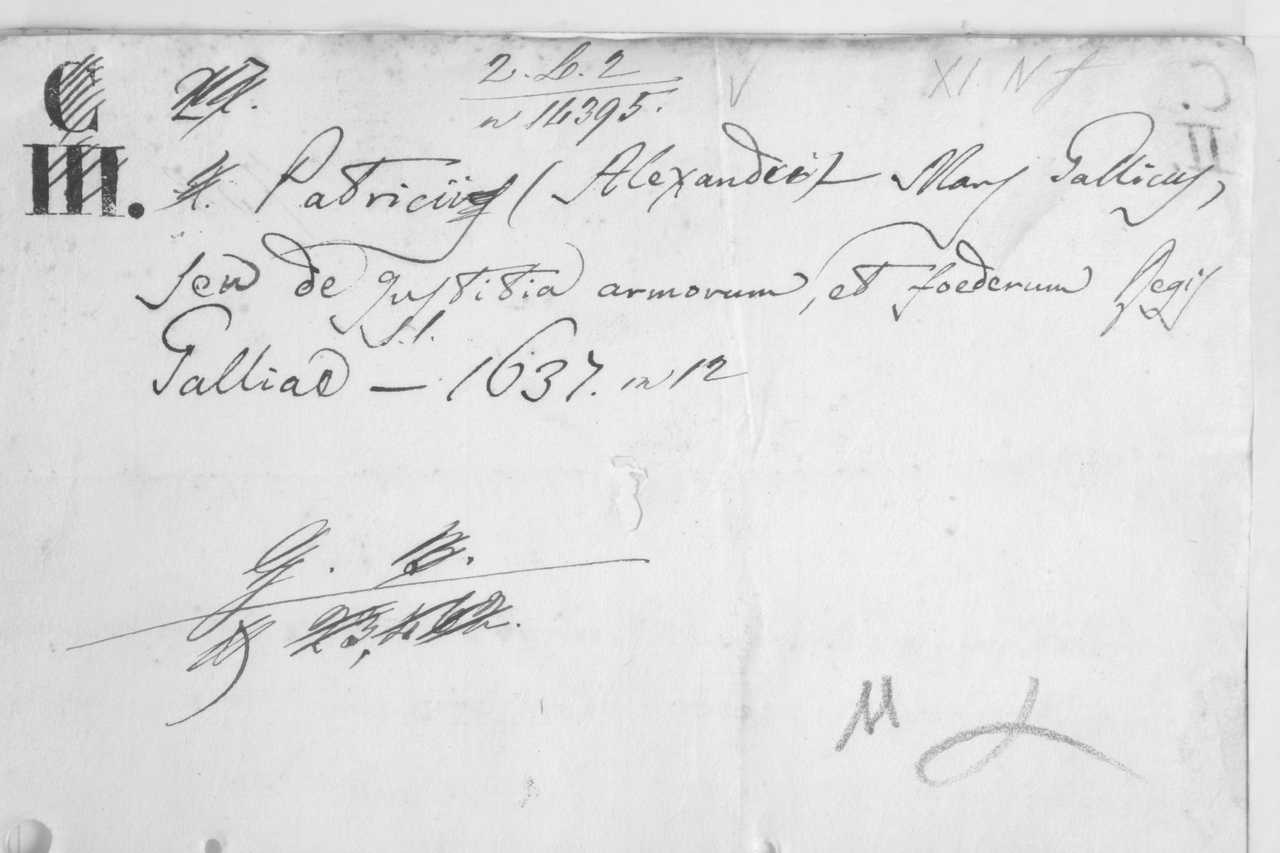 C
III.
2. L. 2
n 14395.
XI. N f
Patricii (Alexandri) Mars Gallicus,
seu de justitia armorum, et foederum Regis
Galliae — s.l. 1637. in 12
G. B.
23,462.
M